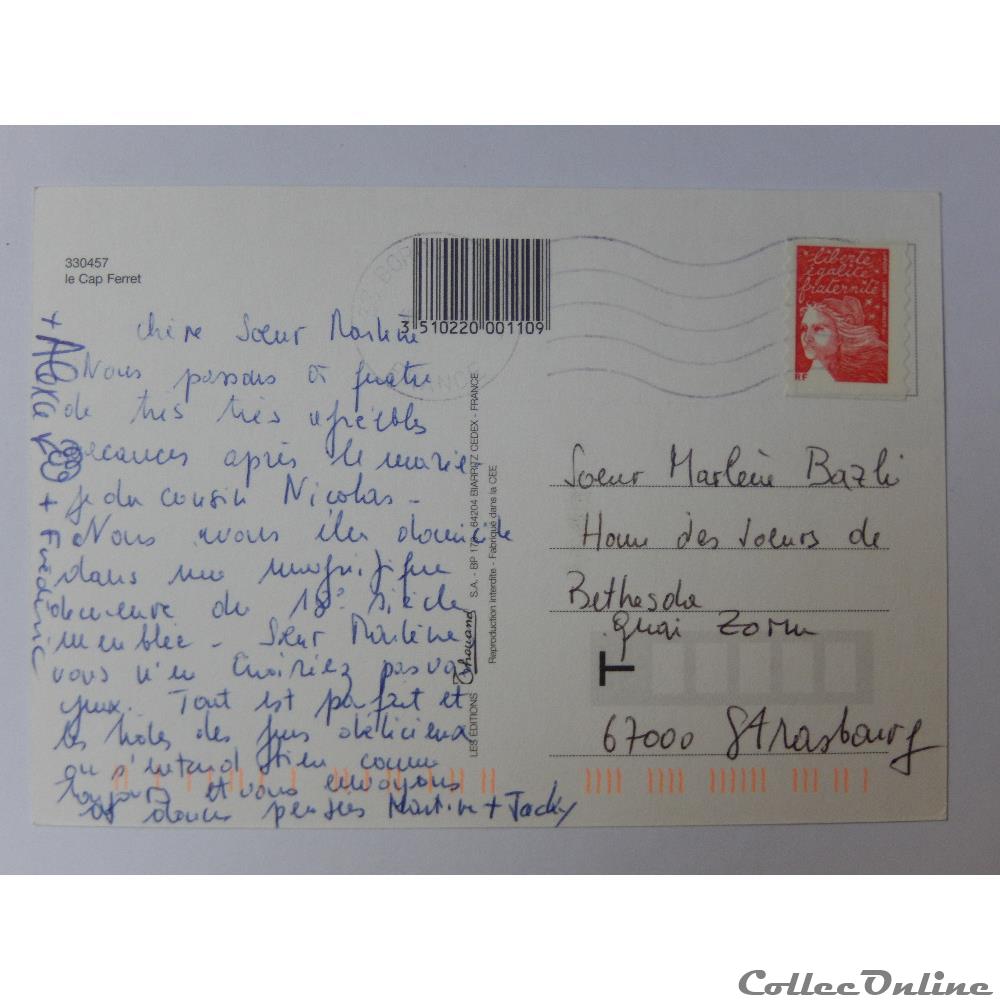 330457
le Cap Ferret
3 510220 001109
liberté
égalité
fraternité
RF
chère Soeur Marlène
Nous passons à quatre
de très très agréables
vacances après le maria
ge du cousin Nicolas -
Nous avons élu domicile
dans une magnifique
demeure du 18e siècle
meublée - Soeur Marlène
vous n'en croiriez pas vos
yeux. Tout est parfait et
les hôtes des gens délicieux
on s'entend bien comme
toujours et vous envoyons
douces pensées Martine + Jacky
+ Frédéric
LES EDITIONS S.A. - BP 64204 BIARRITZ CEDEX - FRANCE
Reproduction interdite - Fabriqué dans la CEE
Soeur Marlène Bazli
Home des soeurs de
Bethesda
Quai Zorn
T
67000 Strasbourg
CollecOnline